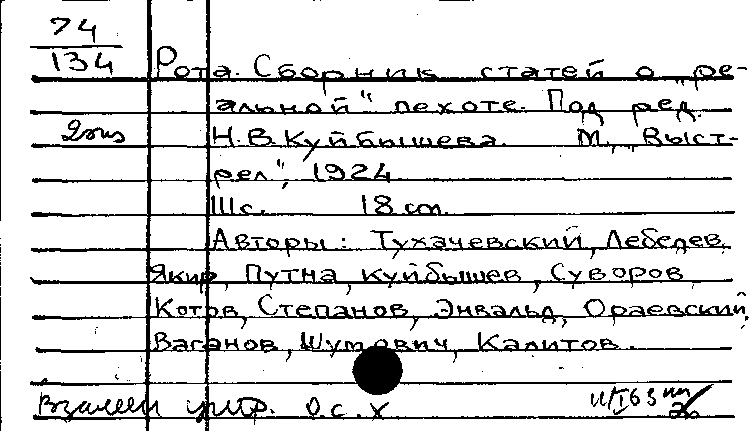 74
134
Рота. Сборник статей о „ре-
альной" пехоте. Под ред.
2 экз Н.В. Куйбышева. М., „Выст-
рел", 1924
111с. 18 см.
Авторы: Тухачевский, Лебедев,
Якир, Путна, Куйбышев, Суворов,
Котов, Степанов, Энвальд, Ораевский,
Ваганов, Шумович, Калитов.
Взамен утр. О.С.Х